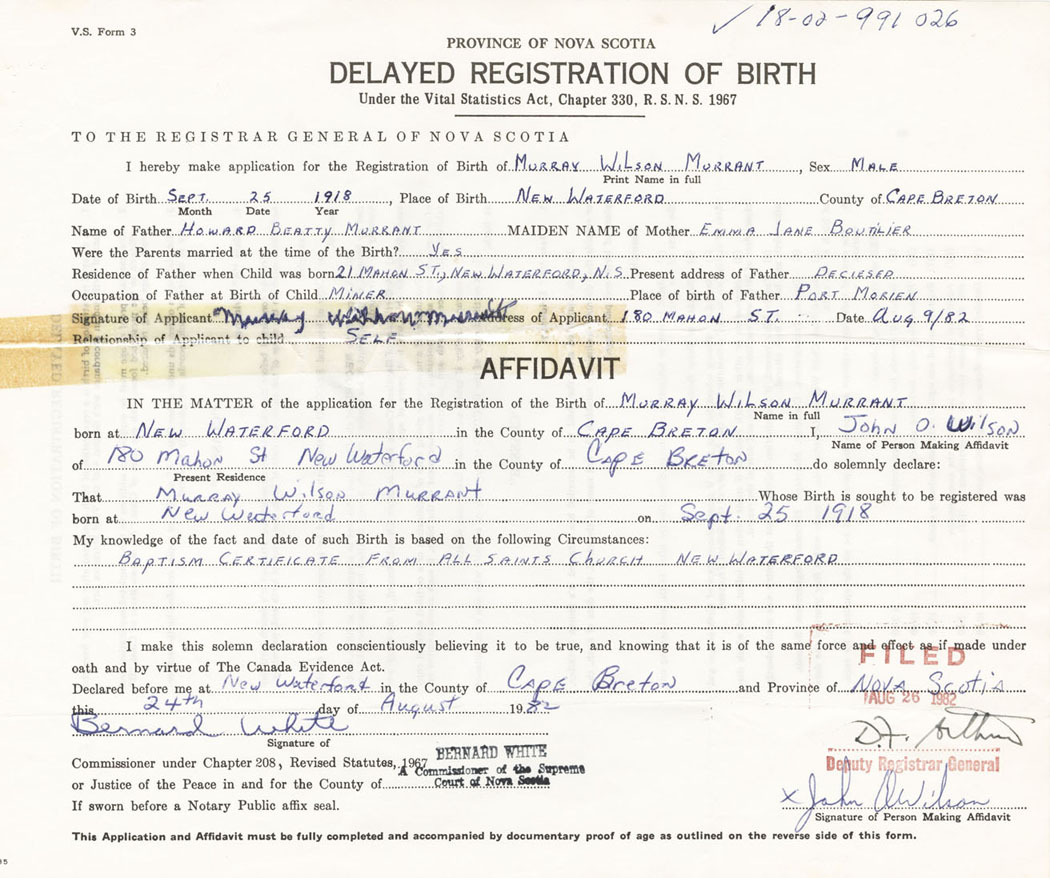 V.S. Form 3
✓ 18-02-991 026
PROVINCE OF NOVA SCOTIA
DELAYED REGISTRATION OF BIRTH
Under the Vital Statistics Act, Chapter 330, R.S.N.S. 1967
TO THE REGISTRAR GENERAL OF NOVA SCOTIA
I hereby make application for the Registration of Birth of MURRAY WILSON MURRANT, Sex MALE
Print Name in full
Date of Birth SEPT. 25 1918, Place of Birth NEW WATERFORD County of CAPE BRETON
Month Date Year
Name of Father HOWARD BEATTY MURRANT MAIDEN NAME of Mother EMMA JANE BOUTILIER
Were the Parents married at the time of the Birth? YES
Residence of Father when Child was born 21 MAHON ST., NEW WATERFORD, N.S. Present address of Father DECIESED
Occupation of Father at Birth of Child MINER Place of birth of Father PORT MORIEN
Signature of Applicant Murray Murrant Address of Applicant 180 MAHON ST. Date AUG 9/82
Relationship of Applicant to child SELF
AFFIDAVIT
IN THE MATTER of the application for the Registration of the Birth of MURRAY WILSON MURRANT
Name in full
born at NEW WATERFORD in the County of CAPE BRETON I, JOHN O. WILSON
Name of Person Making Affidavit
of 180 Mahon St New Waterford in the County of CAPE BRETON do solemnly declare:
Present Residence
That MURRAY WILSON MURRANT Whose Birth is sought to be registered was
born at New Waterford on Sept. 25 1918
My knowledge of the fact and date of such Birth is based on the following Circumstances:
BAPTISM CERTIFICATE FROM ALL SAINTS CHURCH NEW WATERFORD
I make this solemn declaration conscientiously believing it to be true, and knowing that it is of the same force and effect as if made under
oath and by virtue of The Canada Evidence Act.
FILED
Declared before me at New Waterford in the County of CAPE Breton and Province of NOVA SCOTIA
AUG 26 1982
this 24th day of August 1982
Bernard White
D.F. Arthur
Signature of
Commissioner under Chapter 208, Revised Statutes, 1967
BERNARD WHITE
A Commissioner of the Supreme
Court of Nova Scotia
Deputy Registrar General
or Justice of the Peace in and for the County of
x John O Wilson
If sworn before a Notary Public affix seal.
Signature of Person Making Affidavit
This Application and Affidavit must be fully completed and accompanied by documentary proof of age as outlined on the reverse side of this form.